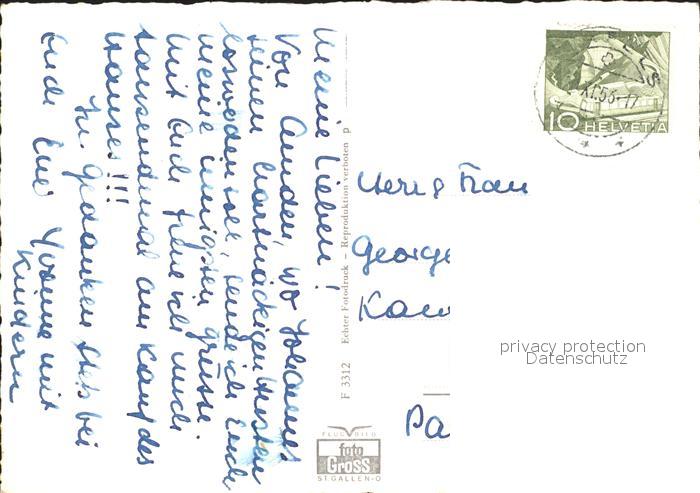 Meine Lieben!
Von Amden, wo Johannes
seinen hartnäckigen Husten
loswerden soll, sende ich Euch
meine innigsten Grüsse.
Mit Euch freue ich mich
tausendmal am Kauf des
Hauses!!!
In Gedanken stets bei
Euch Eure Yvonne mit
Kindern
F 3312 Echter Fotodruck – Reproduktion verboten p
HELVETIA
10
Herr & Frau
George
Kau
Pa
privacy protection
Datenschutz
FLUGBILD
foto
Gross
ST. GALLEN-O